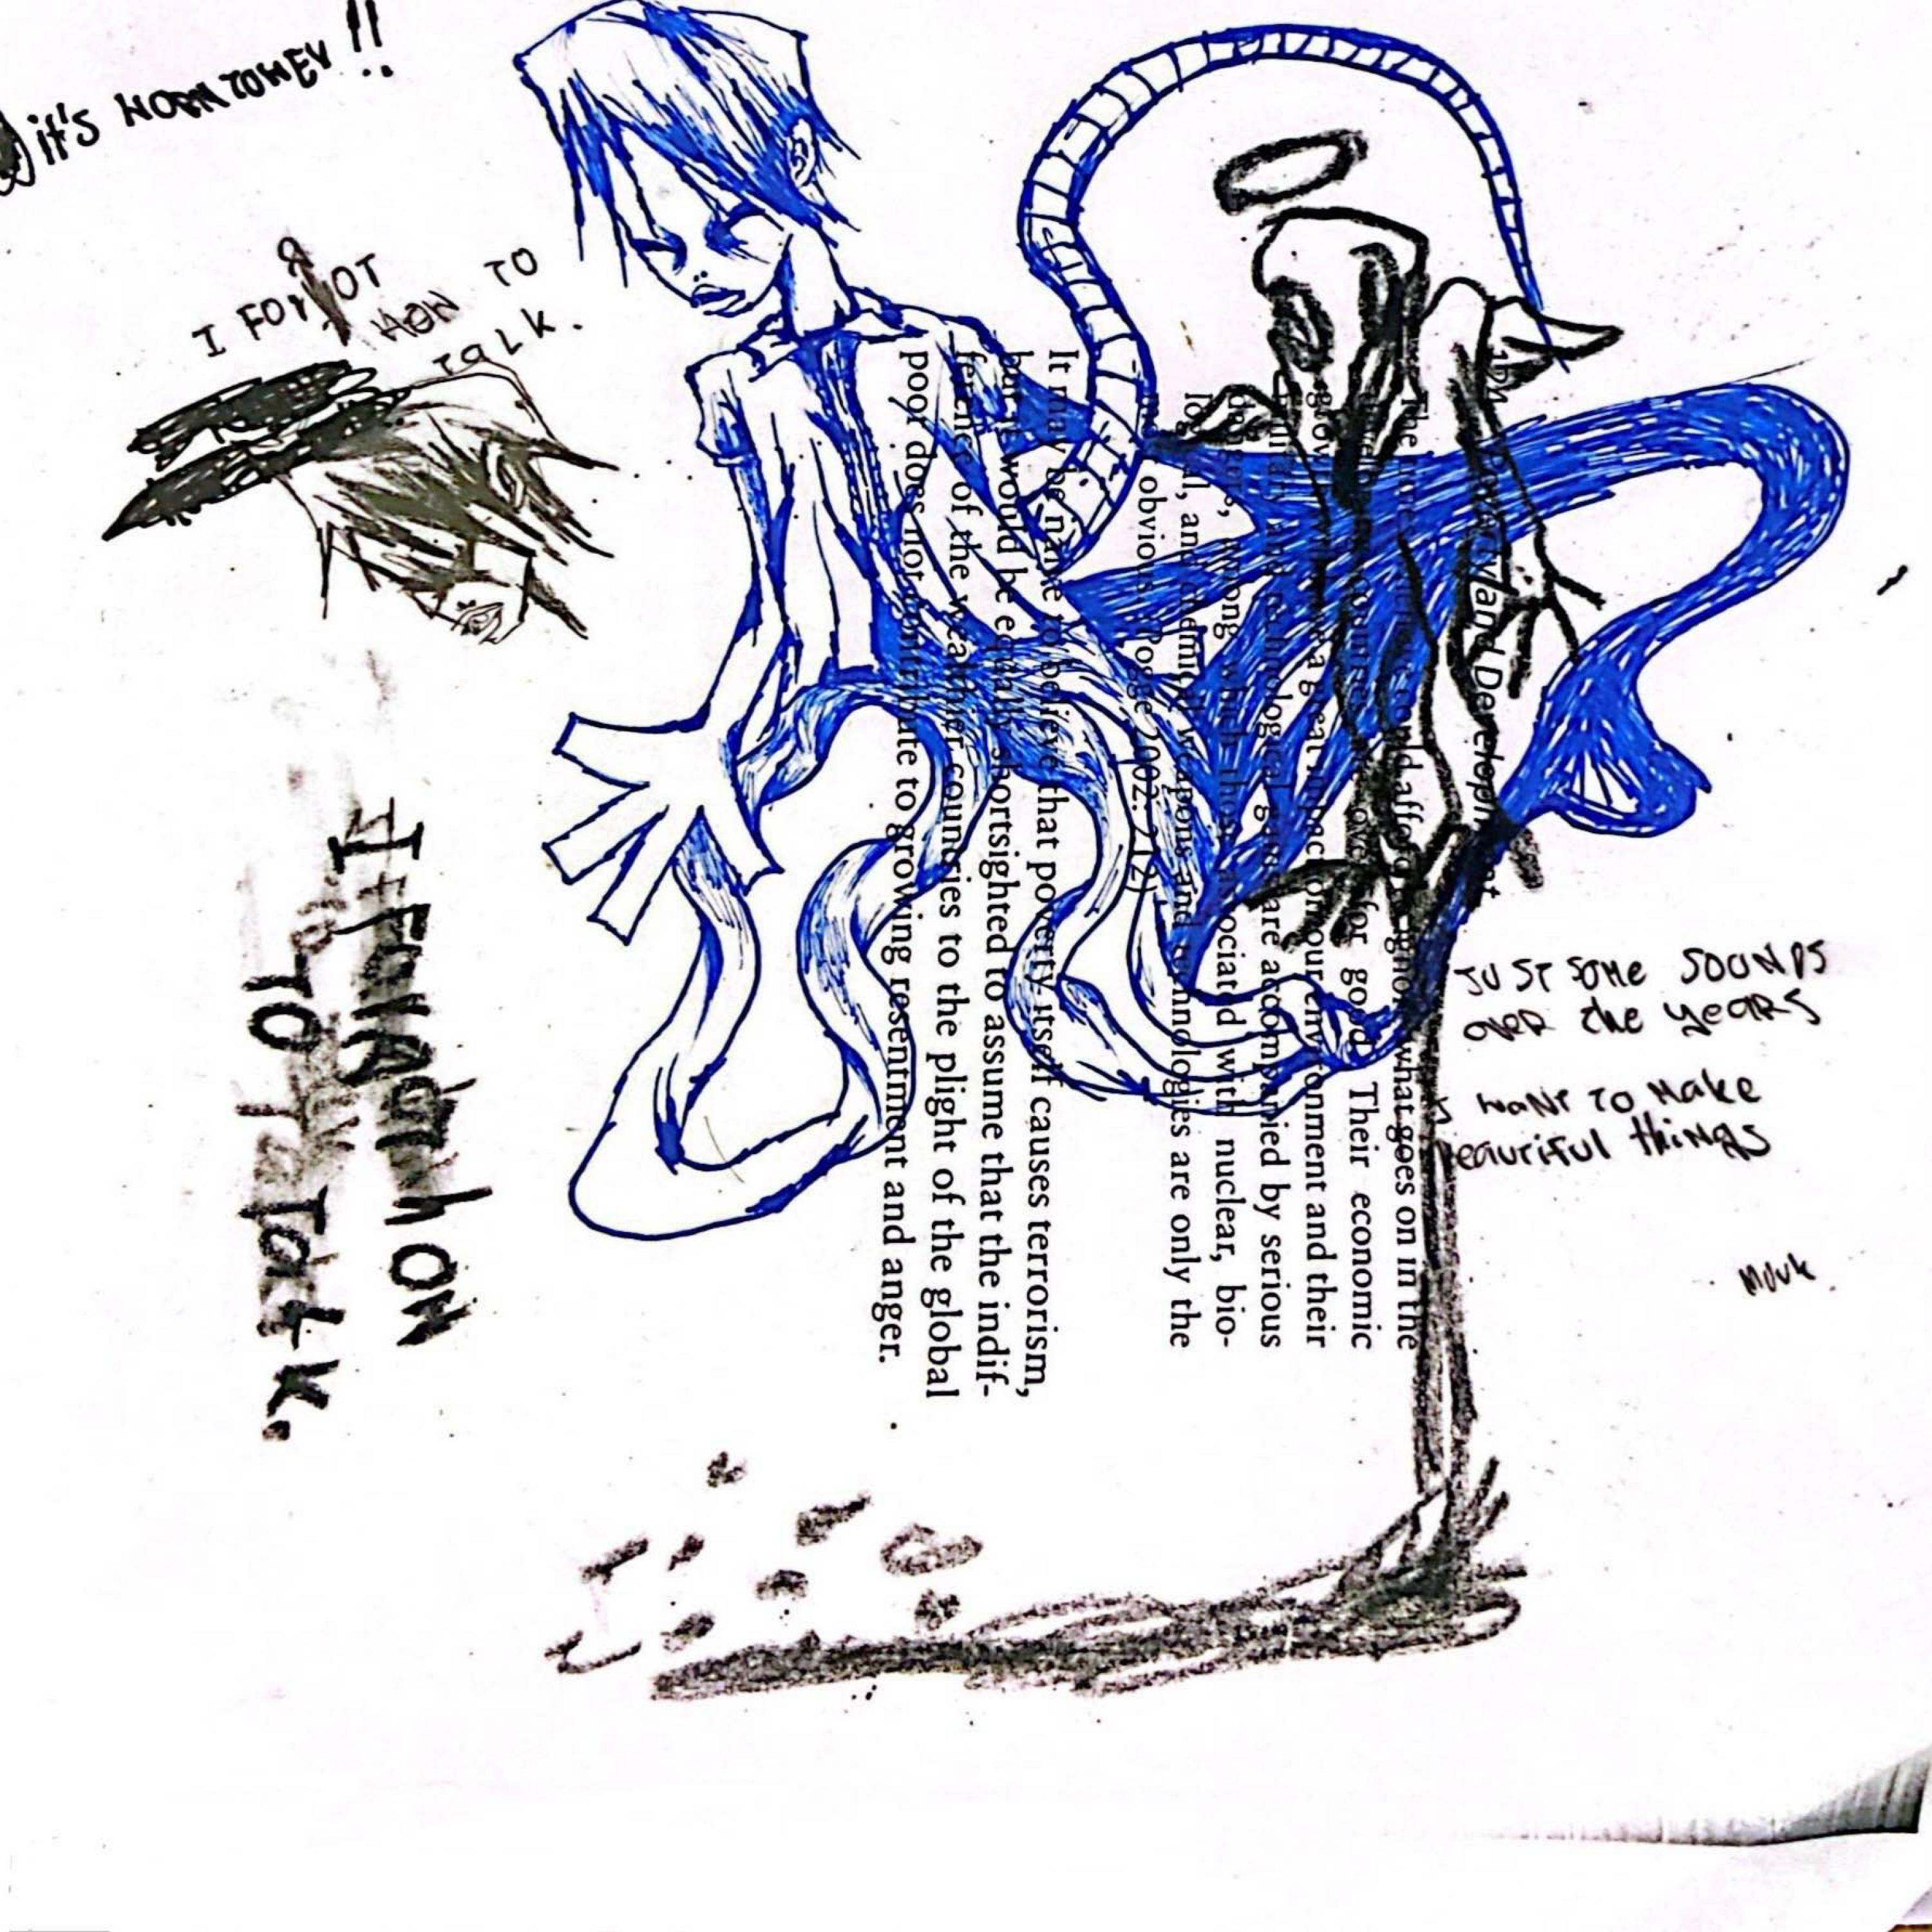 it's !!
I FORGOT
HOW TO
TALK.
I FORGOT HOW
TO TALK.
JUST SOME SOUNDS
OVER the years
I WANT TO Make
Beautiful things
124 Poverty and Development
The rich cannot afford to ignore what goes on in the
for good. Their economic
growth has a great impact on our environment and their
are accompanied by serious
dangers, among which those associated with nuclear, bio-
logical, and chemical weapons and technologies are only the
most obvious. (Pogge 2002: 212)
It may be naive to believe that poverty itself causes terrorism,
but it would be equally shortsighted to assume that the indif-
ference of the wealthier countries to the plight of the global
poor does not contribute to growing resentment and anger.